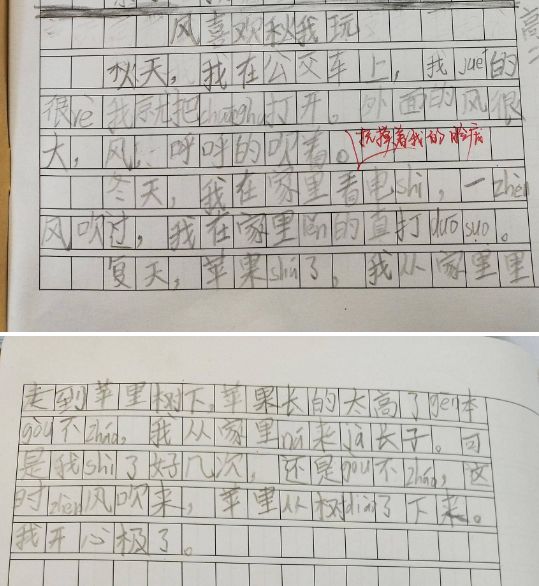 风喜欢和我玩
秋天，我在公交车上，我jue的
很re我就把chuanghu打开。外面的风很
大，风，呼呼的吹着。抚摩着我的脸庞
冬天，我在家里看电shi，一zhen
风吹过，我在家里len的直打duo suo。
夏天，苹果shu了。我从家里里
走到苹里树下，苹果长的太高了gen本
gou不zháo，我从家里ná来jà长子。可
是我shì了好几次，还是gou不zháo，这
时zhen风吹来，苹里从树diao了下来。
我开心极了。